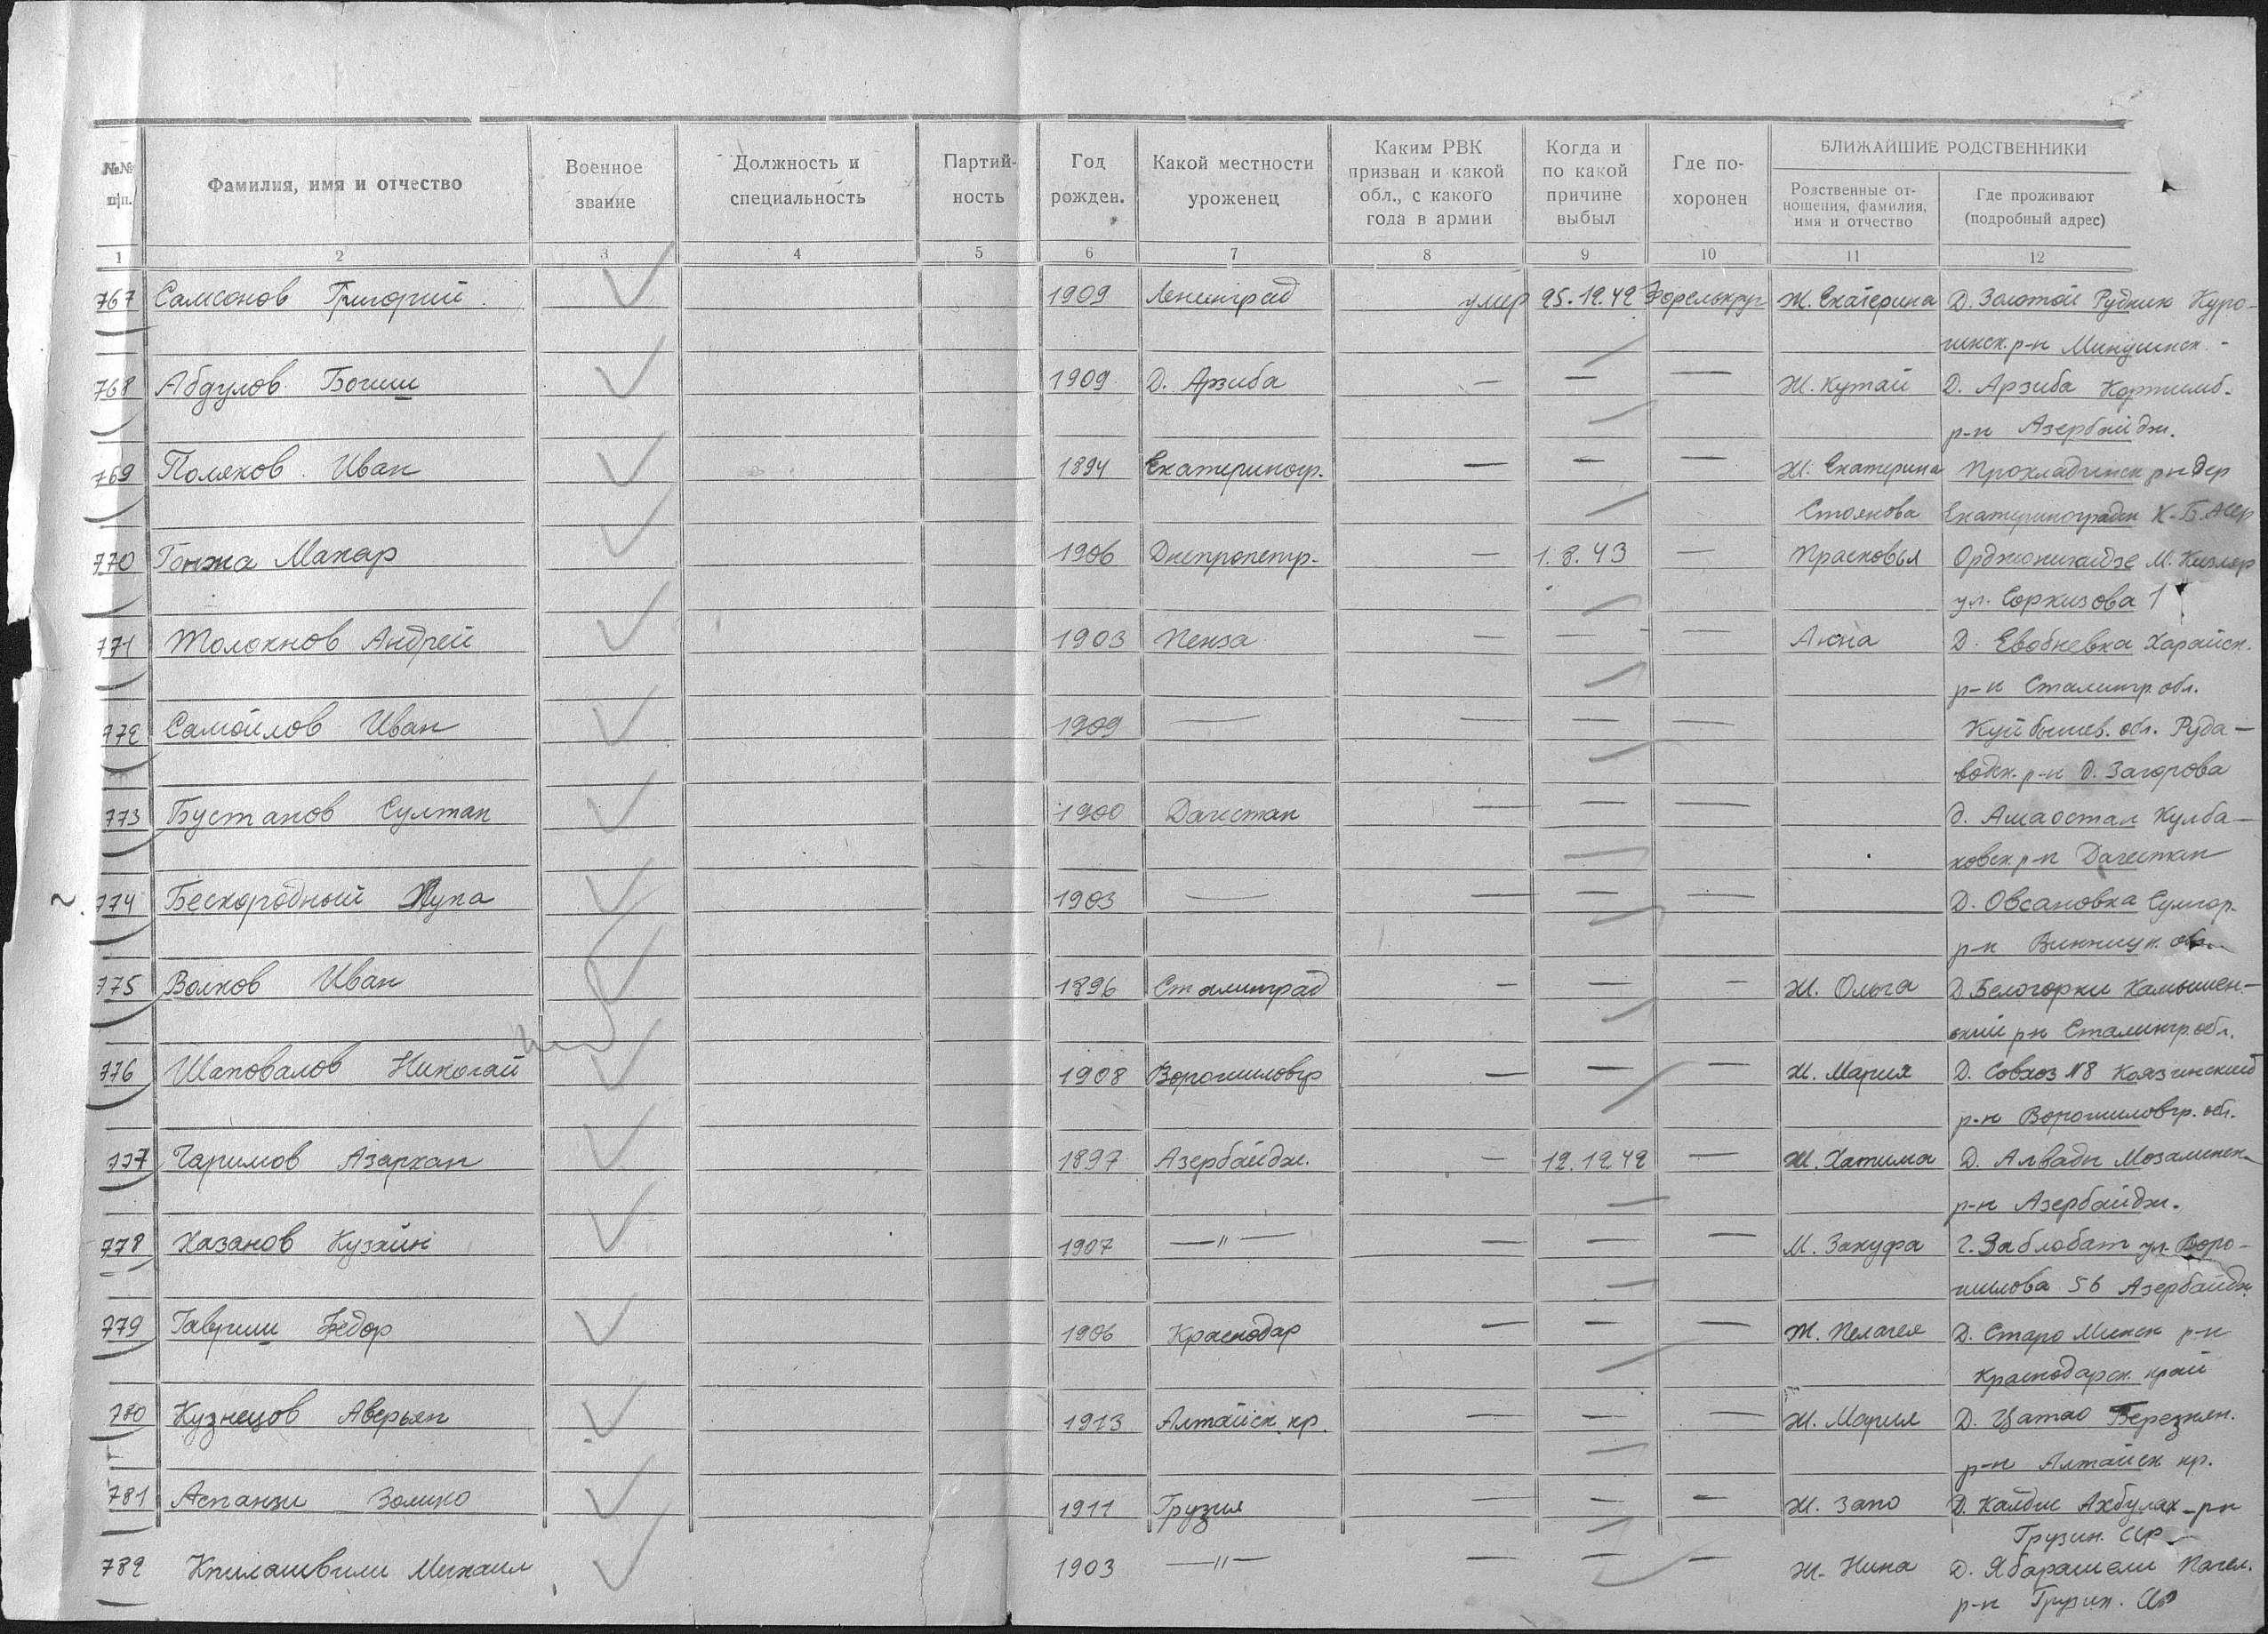 №№ п|п.
Фамилия, имя и отчество
Военное звание
Должность и специальность
Партий- ность
Год рожден.
Какой местности уроженец
Каким РВК призван и какой обл., с какого года в армии
Когда и по какой причине выбыл
Где по- хоронен
БЛИЖАЙШИЕ РОДСТВЕННИКИ
Родственные от- ношения, фамилия, имя и отчество
Где проживают (подробный адрес)
1 2 3 4 5 6 7 8 9 10 11 12
767 Самсонов Григорий 1909 Ленинград умер 25.12.42 Ж. Екатерина Д. Золотой Рудник Куро-
гинск. р-н
768 Абдулов Богиш 1909 Д. Арзиба — — — Ж. Кутай Д. Арзиба
р-н Азербайдж.
769 Поляков Иван 1894 Екатериногр. — — — Ж. Екатерина Прохладнинск р-н Дер
Стоянова Екатериноградск К-Б. АССР
770 Гонжа Макар 1906 Днепропетр. — 1.8.43 — Прасковья Орджоникидзе М. Кизляр
ул. Соркизова 1
771 Толокнов Андрей 1903 Пенза — — — Анна Д. Евобневка Харайск.
р-н Сталингр. обл.
772 Самойлов Иван 1909 — — — — Куйбышев. обл. Руда-
вовк. р-н д. Загорова
773 Бустанов Султан 1900 Дагестан — — — д. Амаостал Кулба-
ковск р-н Дагестан
774 Бескородный 1903 — — — — Д. Овсановка
р-н Винницк. обл.
775 Волков Иван 1896 Сталинград — — — Ж. Ольга Д. Белогорки Камышен-
ский рн Сталингр. обл.
776 Шаповалов Николай 1908 Ворошиловгр — — — Ж. Мария Д. Совхоз №8
р-н Ворошиловгр. обл.
777 Чаримов Азархан 1897 Азербайдж. — 12.12.42 — Ж. Хатима Д. Алвади
р-н Азербайдж.
778 Хазанов Кузайн 1907 —"— — — — М. Закуфа г. Заблобат ул. Воро-
шилова 56 Азербайдж.
779 Гавриш Федор 1906 Краснодар — — — Ж. Пелагея Д. Старо Минск р-н
Краснодарск. край
780 Кузнецов Аверьян 1913 Алтайск. кр. — — — Ж. Мария Д. Цатао
р-н Алтайск кр.
781 Аспанзи Золико 1911 Грузия — — — Ж. Запо Д. Кайдис Ахбулах-рн
Грузин. ССР
782 Книлашвили Михаил 1903 —"— — — — Ж. Нина Д.
р-н Грузин. ССР